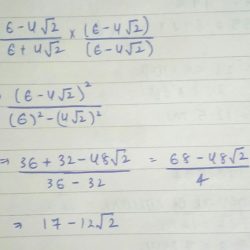 6-4√2/6+4√2 × (6-4√2)/(6-4√2)
(6-4√2)²/(6)²-(4√2)²
⇒ 36+32-48√2/36-32 = 68-48√2/4
⇒ 17-12√2